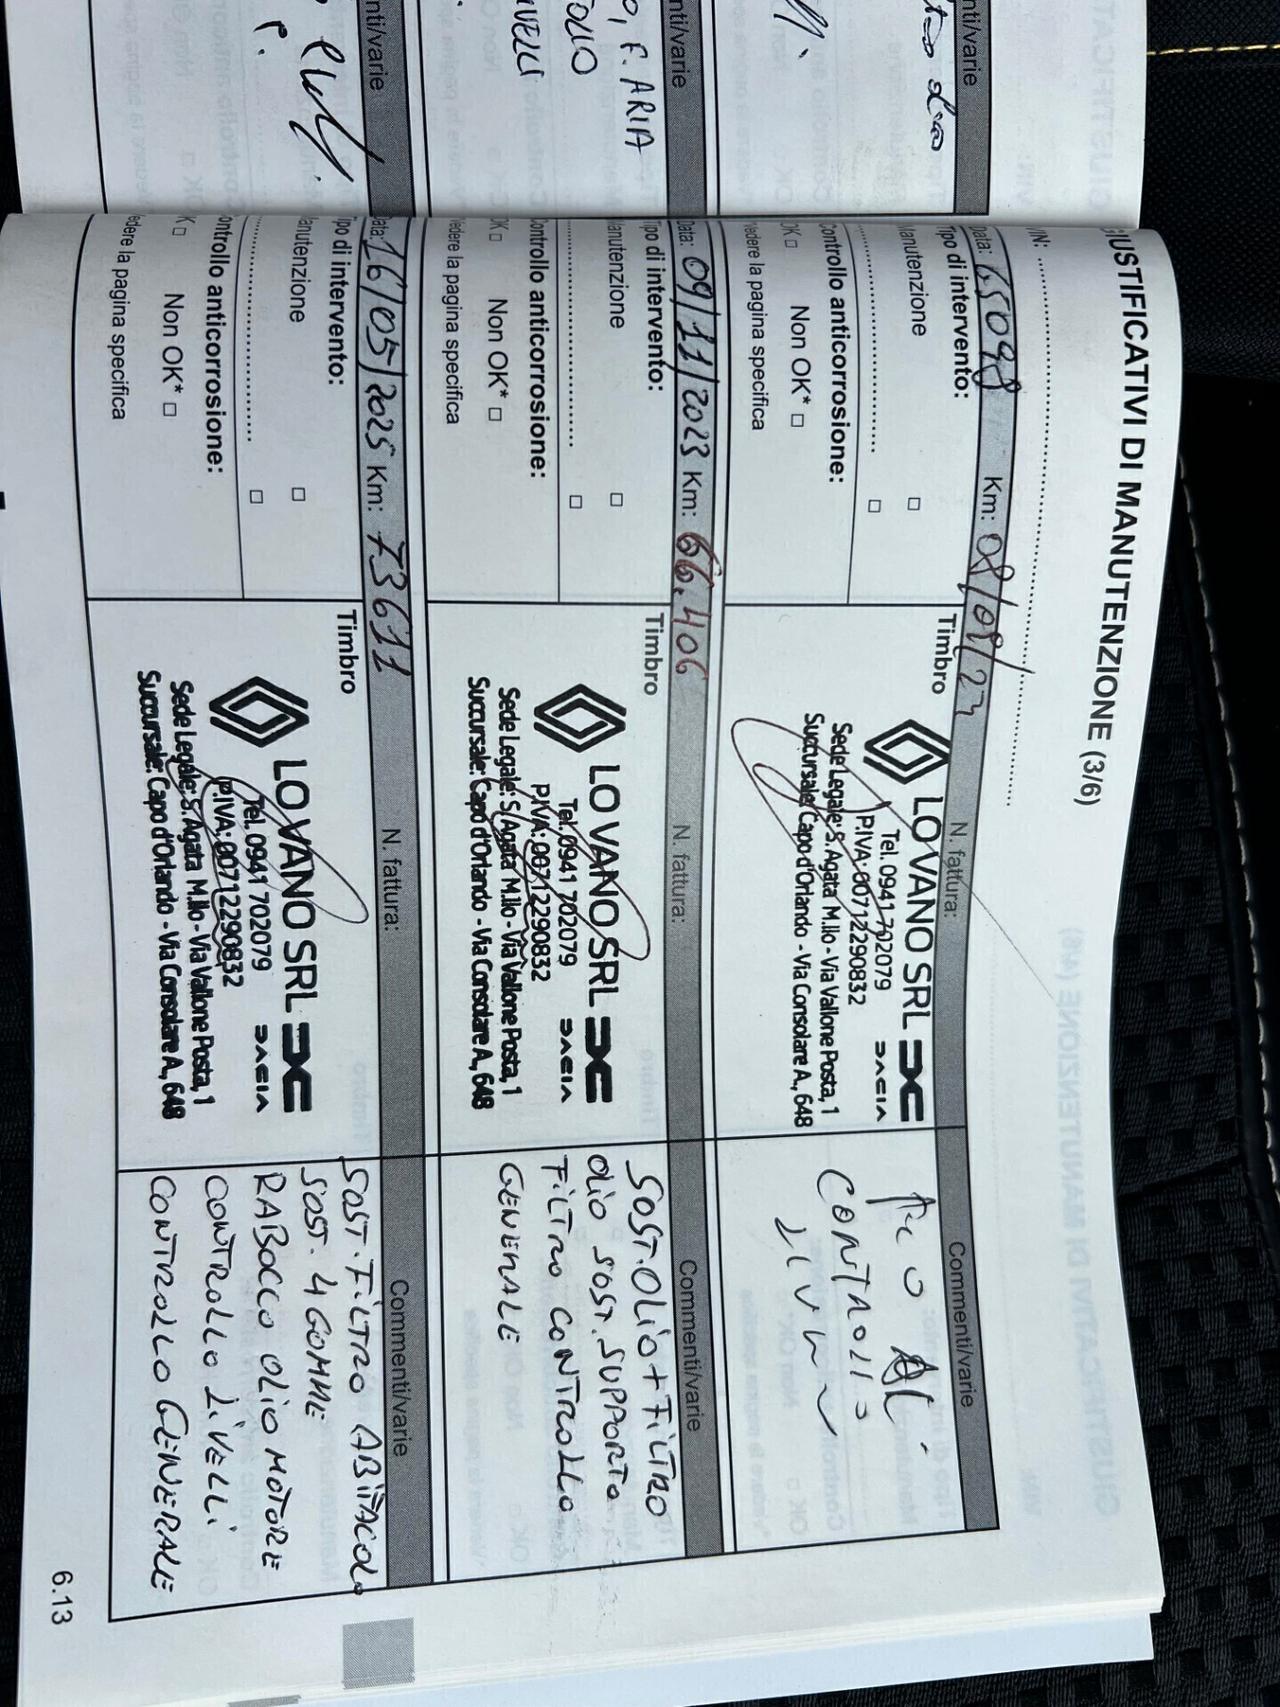 GIUSTIFICATIVI DI MANUTENZIONE (3/6)
Data: 65098 Km: 08/08/23 N. fattura: Commenti/varie
Tipo di intervento:
Manutenzione
Controllo anticorrosione:
OK Non OK*
Vedere la pagina specifica
Timbro
LO VANO SRL
DACIA
Tel. 0941 702079
P.IVA: 00712290832
Sede Legale: S. Agata M.llo - Via Vallone Posta, 1
Succursale: Capo d'Orlando - Via Consolare A., 648
OLIO
CONTROLLO
Data: 09/11/2023 Km: 66.406 N. fattura: Commenti/varie
Tipo di intervento:
Manutenzione
Controllo anticorrosione:
OK Non OK*
Vedere la pagina specifica
Timbro
LO VANO SRL
DACIA
Tel. 0941 702079
P.IVA: 00712290832
Sede Legale: S. Agata M.llo - Via Vallone Posta, 1
Succursale: Capo d'Orlando - Via Consolare A., 648
SOST. OLIO + FILTRO
OLIO SOST. SUPPORTO
FILTRO CONTROLLO
GENERALE
Data: 16/05/2025 Km: 73611 N. fattura: Commenti/varie
Tipo di intervento:
Manutenzione
Controllo anticorrosione:
OK Non OK*
Vedere la pagina specifica
Timbro
LO VANO SRL
DACIA
Tel. 0941 702079
P.IVA: 00712290832
Sede Legale: S. Agata M.llo - Via Vallone Posta, 1
Succursale: Capo d'Orlando - Via Consolare A., 648
SOST. FILTRO ABITACOLO
SOST. 4 GOMME
RABOCCO OLIO MOTORE
CONTROLLO LIVELLI
CONTROLLO GENERALE
6.13